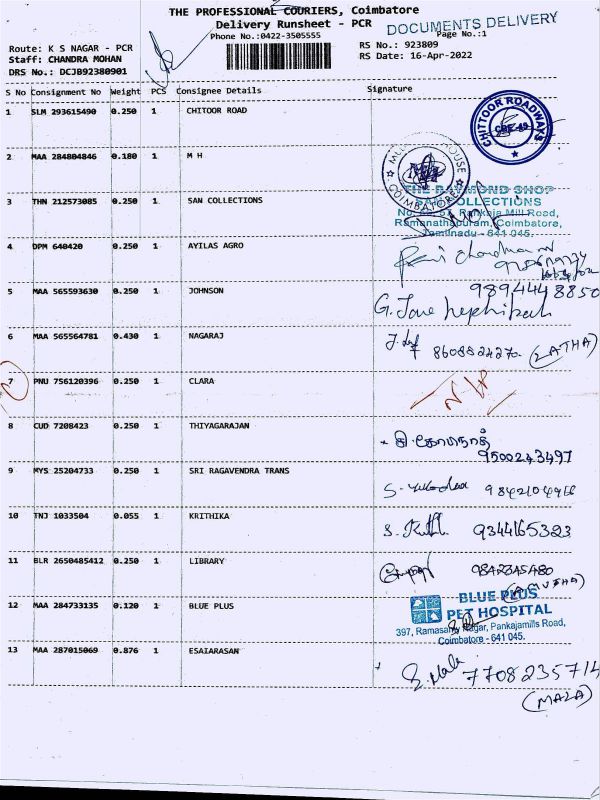 THE PROFESSIONAL COURIERS, Coimbatore
Delivery Runsheet - PCR
DOCUMENTS DELIVERY
Phone No.:0422-3505555
Page No.:1
Route: K S NAGAR - PCR
RS No.: 923809
Staff: CHANDRA MOHAN
RS Date: 16-Apr-2022
DRS No.: DCJB92380901
S No Consignment No Weight PCS Consignee Details Signature
1 SLM 293615490 0.250 1 CHITOOR ROAD
CHITTOOR ROADWAYS
CBE-45
2 MAA 284804846 0.180 1 M H
HOUSE
COIMBATORE
3 THN 212573085 0.250 1 SAN COLLECTIONS
THE RAYMOND SHOP
SAN COLLECTIONS
Pankaja Mill Road,
Ramanathapuram, Coimbatore,
Tamilnadu - 641 045.
4 DPM 640420 0.250 1 AYILAS AGRO
5 MAA 565593630 0.250 1 JOHNSON
9894448850
G. Jane
6 MAA 565564781 0.430 1 NAGARAJ
(LATHA)
7 PNU 756120396 0.250 1 CLARA
8 CUD 7208423 0.250 1 THIYAGARAJAN
9500243497
9 MYS 25204733 0.250 1 SRI RAGAVENDRA TRANS
10 TNJ 1033504 0.055 1 KRITHIKA
9344165323
11 BLR 2650485412 0.250 1 LIBRARY
9842345480
(AMUTHA)
12 MAA 284733135 0.120 1 BLUE PLUS
BLUE PLUS
PET HOSPITAL
397, Ramasamy Nagar, Pankajamills Road,
Coimbatore - 641 045.
13 MAA 287015069 0.876 1 ESAIARASAN
S. Mala 7708235714
(MALA)